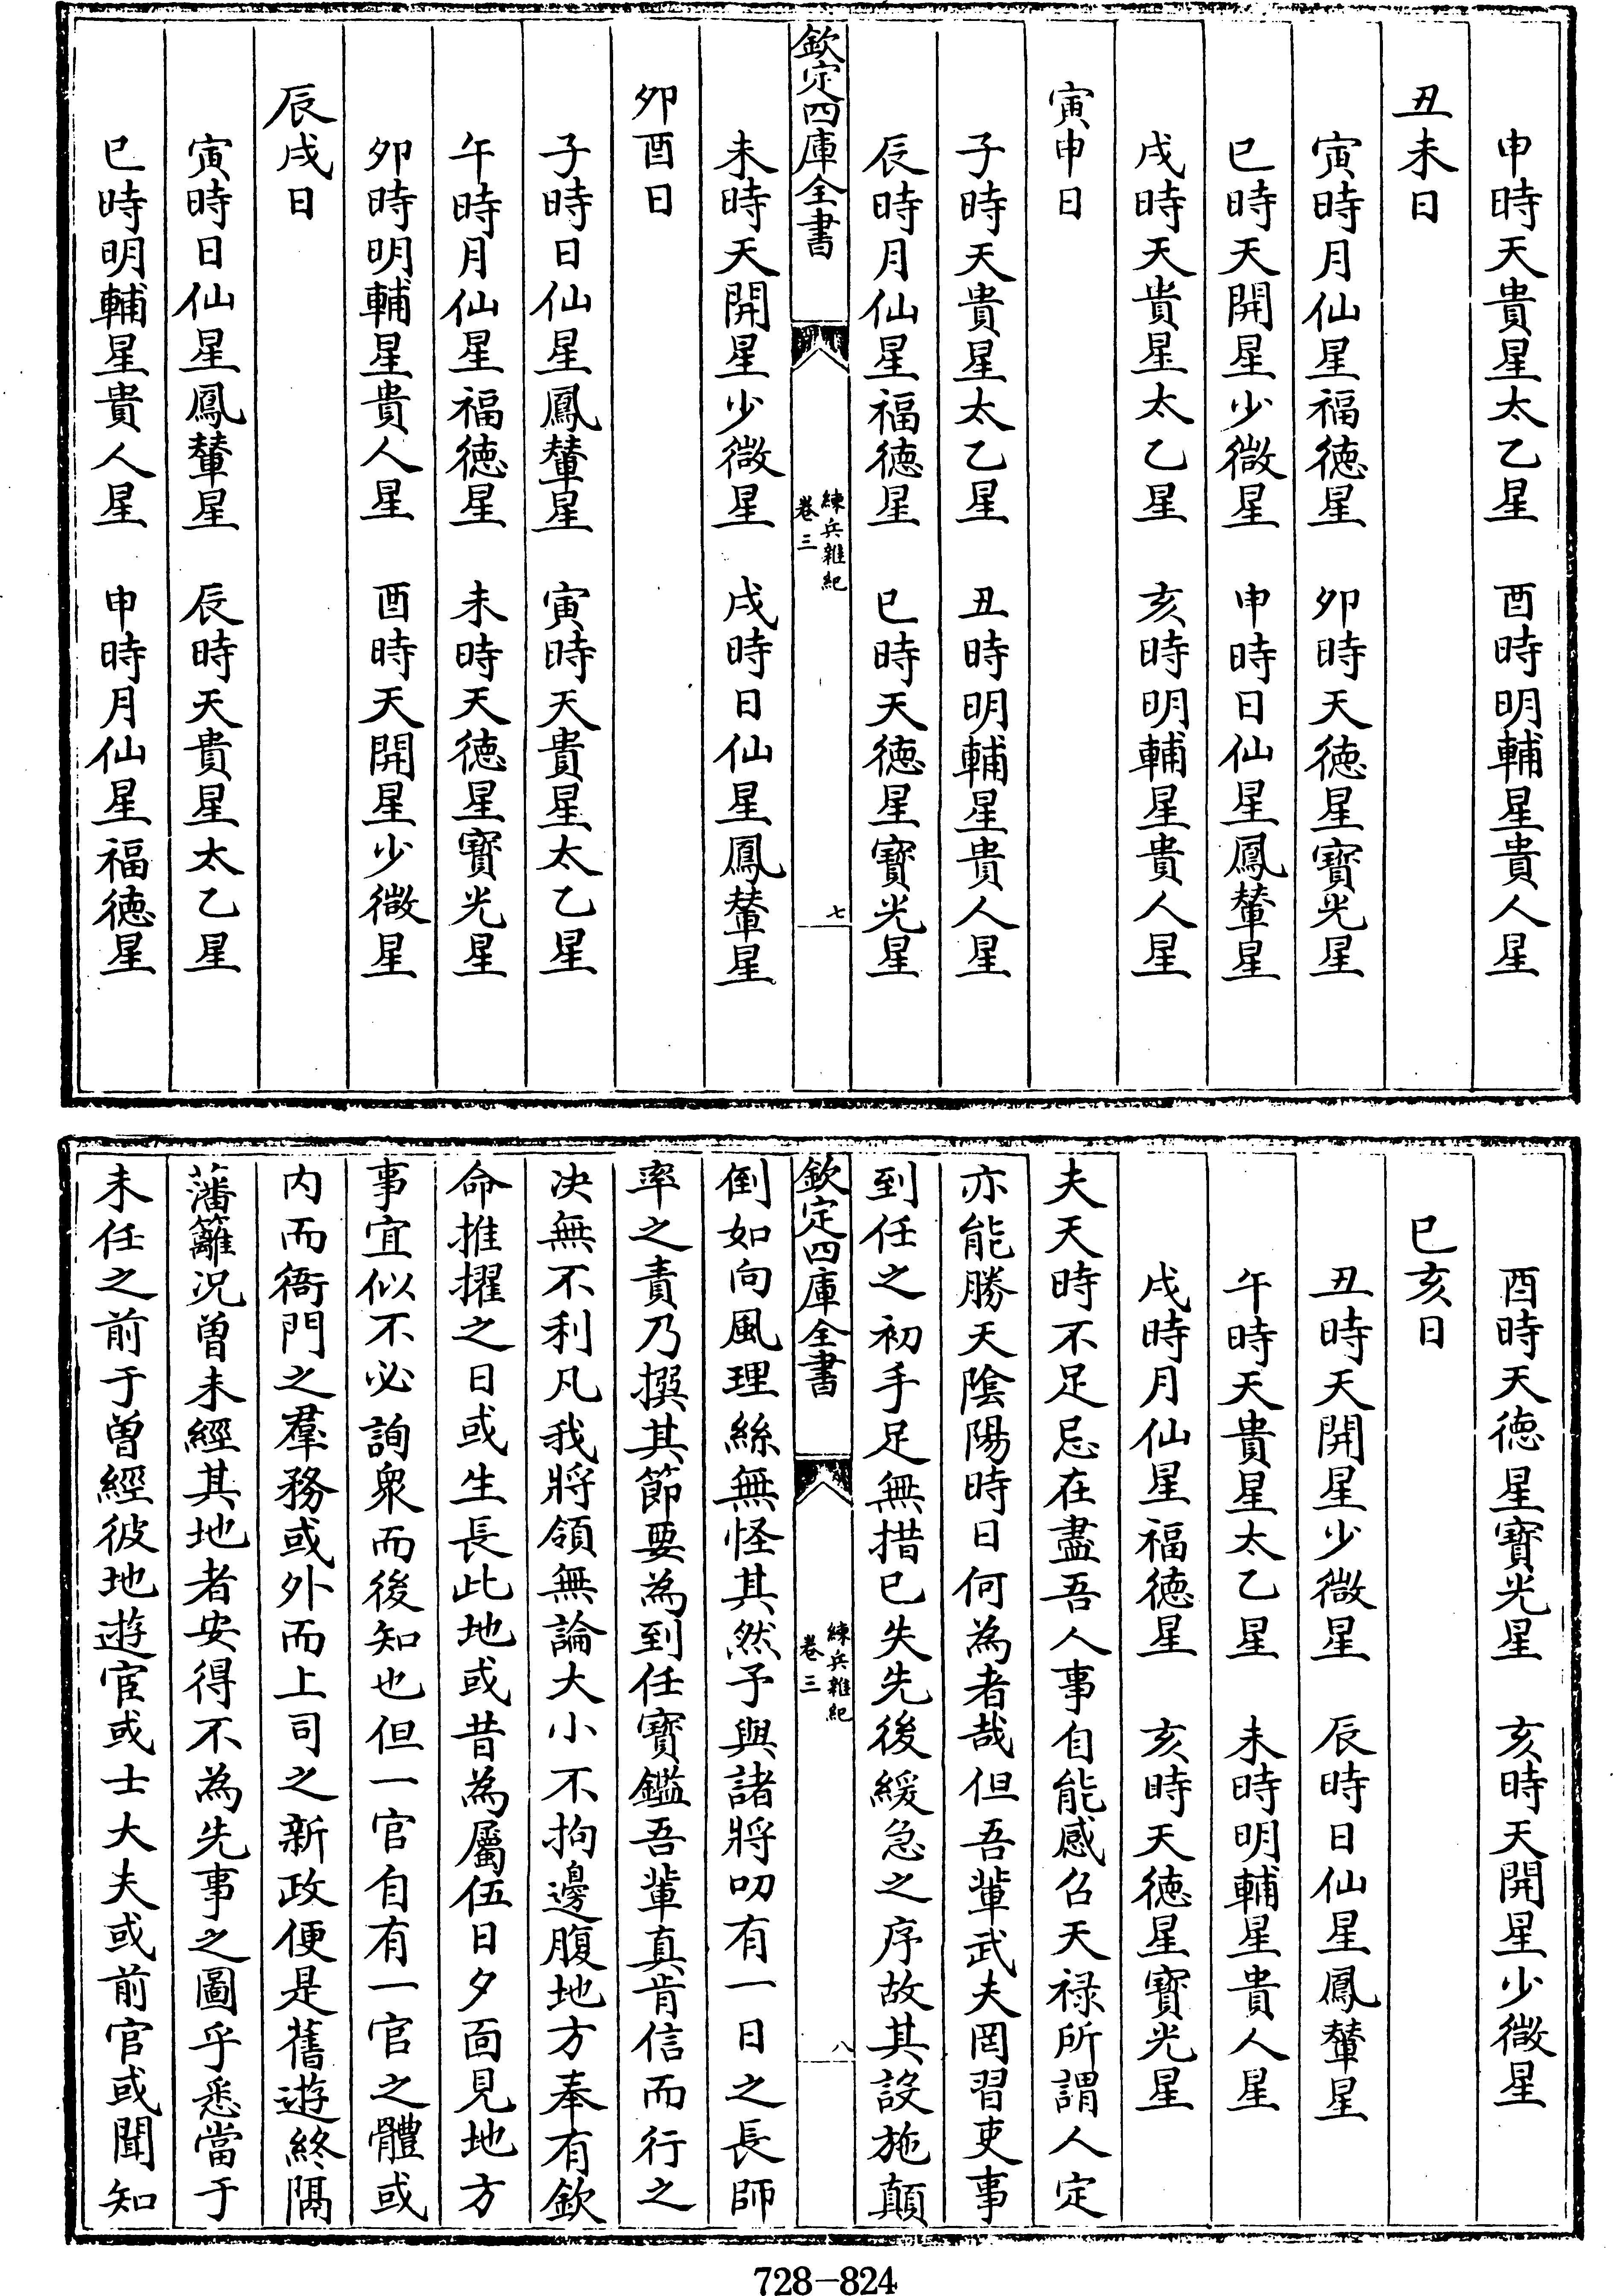 申時天貴星太乙星　酉時明輔星貴人星
丑未日
寅時月仙星福徳星　卯時天徳星寳光星
巳時天開星少微星　申時日仙星鳳輦星
戌時天貴星太乙星　亥時明輔星貴人星
寅申日
子時天貴星太乙星　丑時明輔星貴人星
辰時月仙星福徳星　巳時天徳星寳光星
欽定四庫全書
練兵雜紀
卷三
七
未時天開星少微星　戌時日仙星鳳輦星
卯酉日
子時日仙星鳳輦星　寅時天貴星太乙星
午時月仙星福徳星　未時天徳星寳光星
卯時明輔星貴人星　酉時天開星少微星
辰戌日
寅時日仙星鳳輦星　辰時天貴星太乙星
巳時明輔星貴人星　申時月仙星福徳星
酉時天徳星寳光星　亥時天開星少微星
巳亥日
丑時天開星少微星　辰時日仙星鳳輦星
午時天貴星太乙星　未時明輔星貴人星
戌時月仙星福徳星　亥時天徳星寳光星
夫天時不足忌在盡吾人事自能感召天禄所謂人定
亦能勝天陰陽時日何為者哉但吾輩武夫罔習吏事
到任之初手足無措已失先後緩急之序故其設施顛
欽定四庫全書
練兵雜紀
卷三
八
倒如向風理絲無怪其然予與諸將叨有一日之長師
率之責乃撰其節要為到任寳鑑吾輩真肯信而行之
决無不利凡我將領無論大小不拘邊腹地方奉有欽
命推擢之日或生長此地或昔為屬伍日夕面見地方
事宜似不必詢衆而後知也但一官自有一官之體或
内而衙門之羣務或外而上司之新政便是舊遊終隔
藩籬况曽未經其地者安得不為先事之圖乎悉當于
未任之前于曽經彼地遊宦或士大夫或前官或聞知
728-824